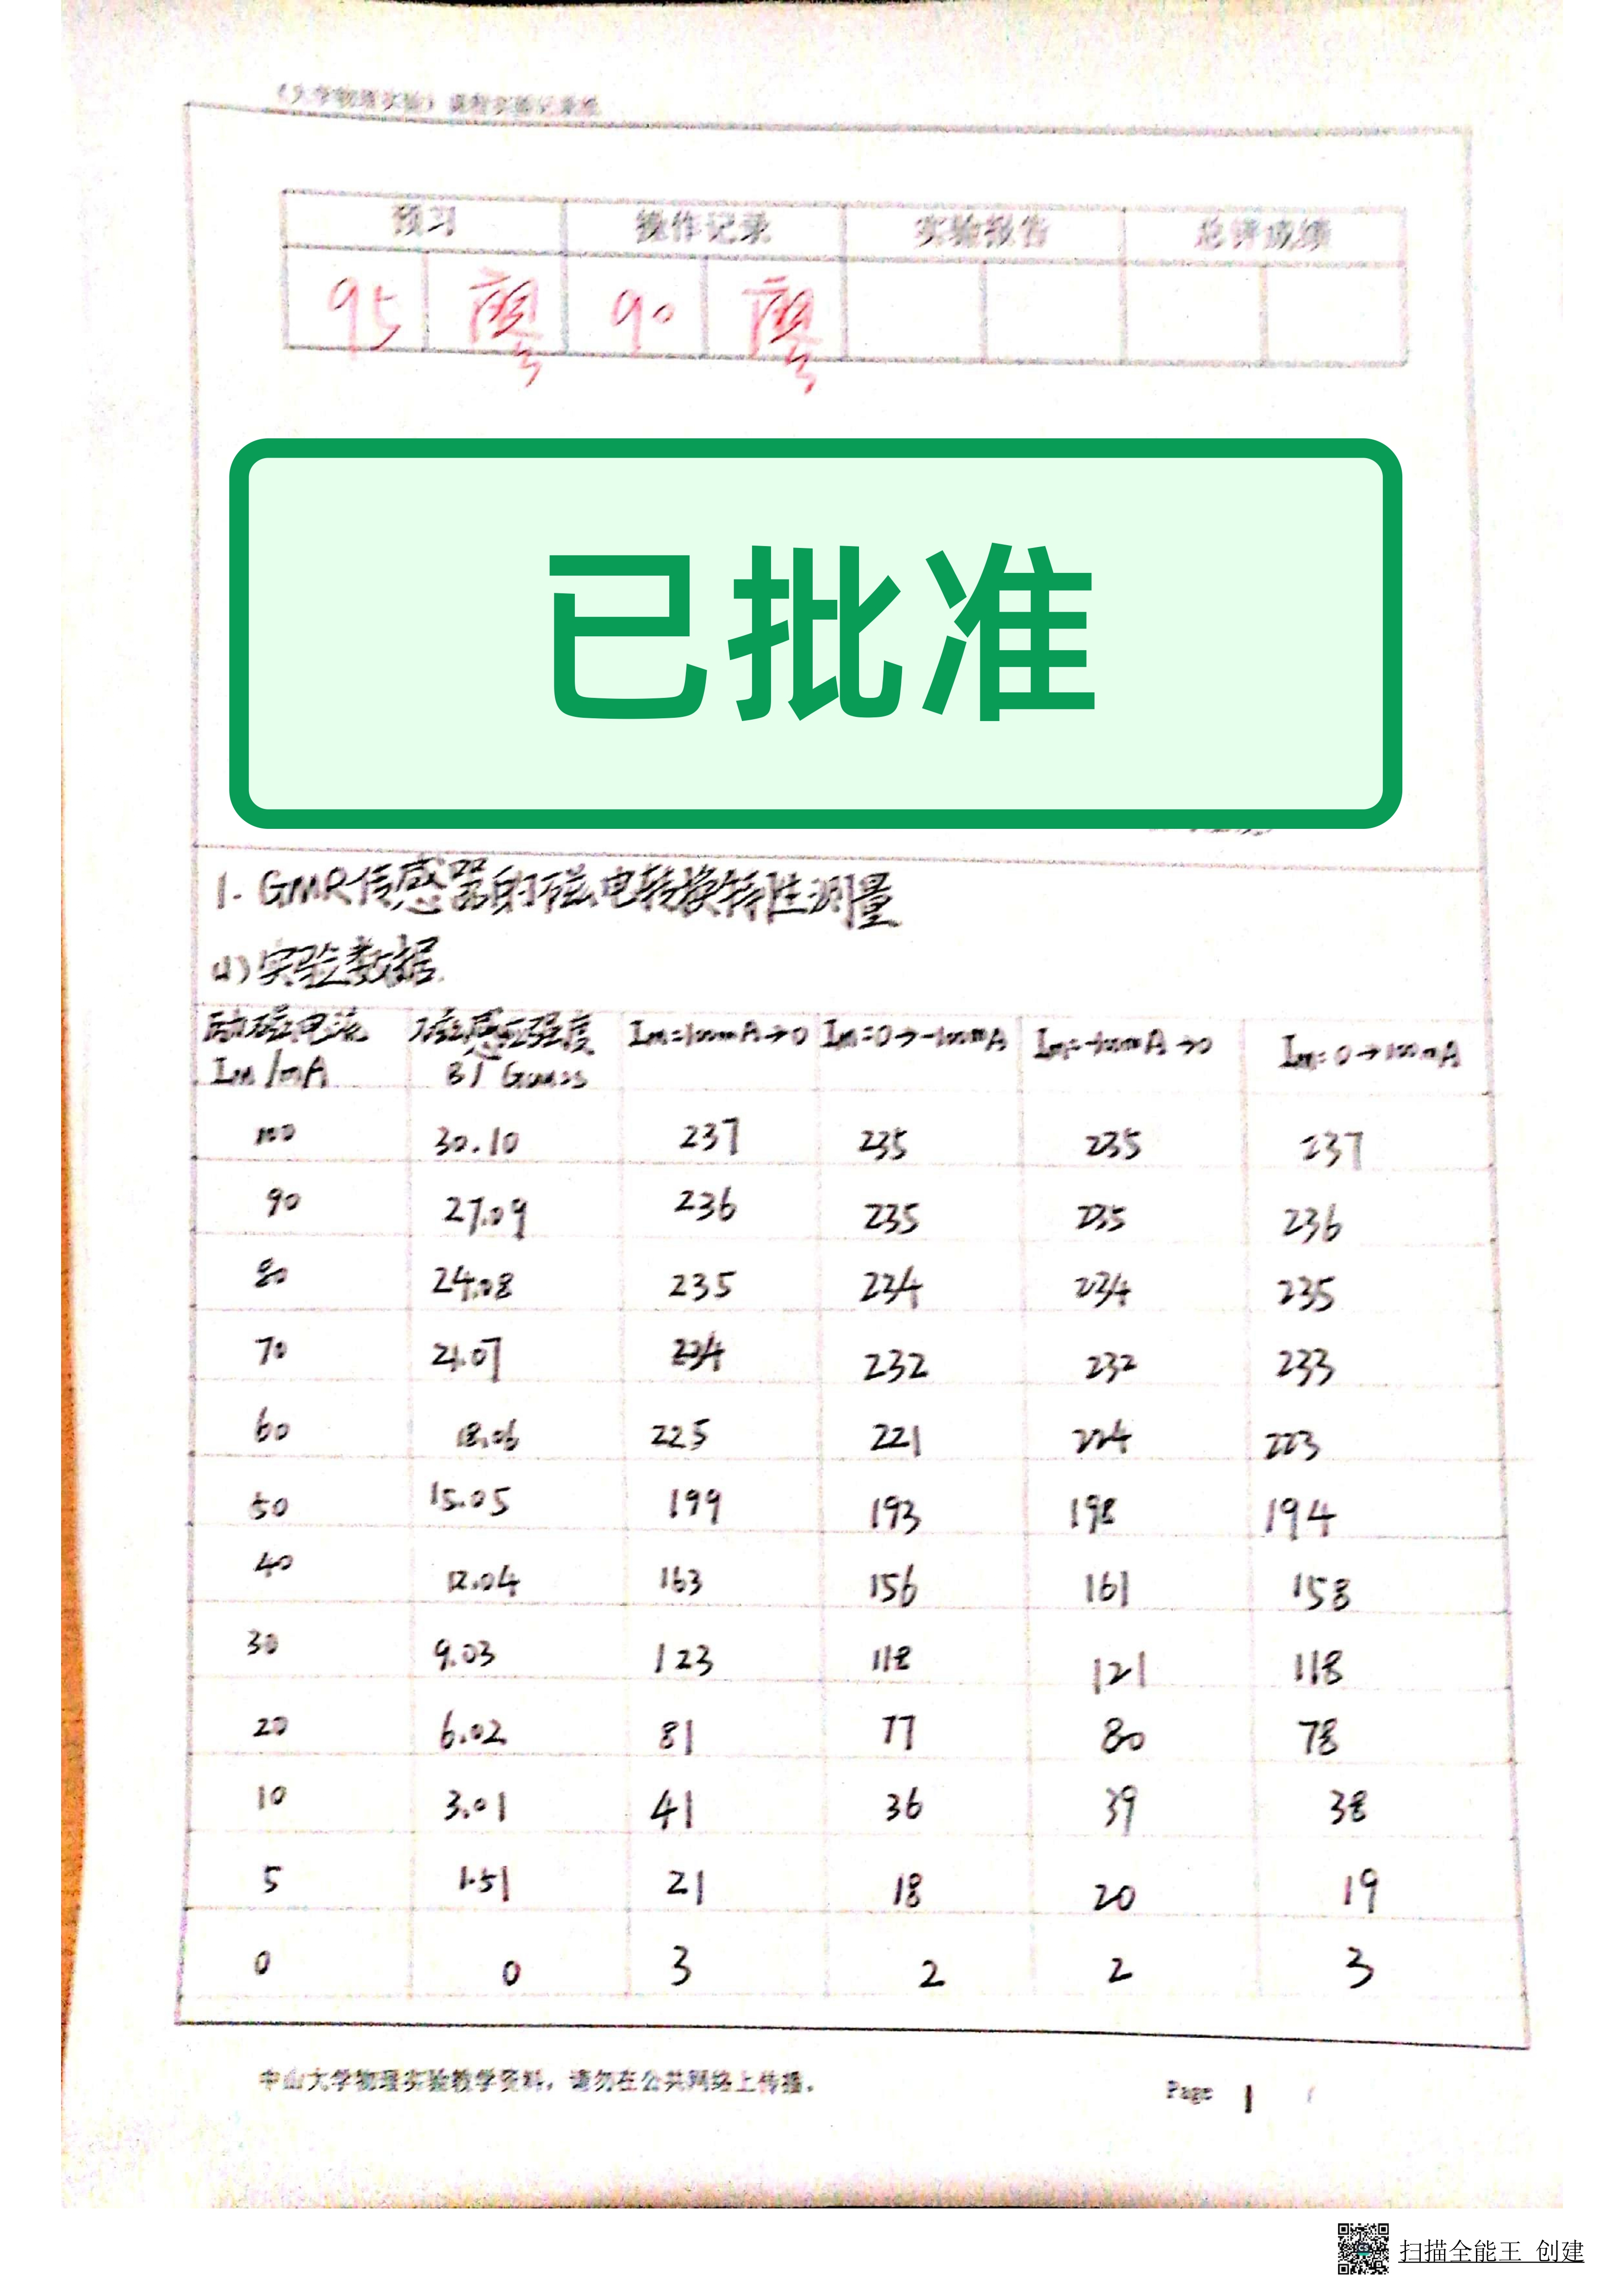 《大学物理实验》课程实验记录纸
预习 操作记录 实验报告 总评成绩
95 廖 90 廖
已批准
1. GMR传感器的磁电转换特性测量
(1) 实验数据
励磁电流 磁感应强度 IM=100mA→0 IM=0→-100mA IM=-100mA→0 IM=0→100mA
IM/mA B/Gauss
100 30.10 237 235 235 237
90 27.09 236 235 235 236
80 24.08 235 234 234 235
70 21.07 234 232 232 233
60 18.06 225 221 224 223
50 15.05 199 193 198 194
40 12.04 163 156 161 158
30 9.03 123 118 121 118
20 6.02 81 77 80 78
10 3.01 41 36 39 38
5 1.51 21 18 20 19
0 0 3 2 2 3
中山大学物理实验教学资料，请勿在公共网络上传播。 Page 1
扫描全能王 创建